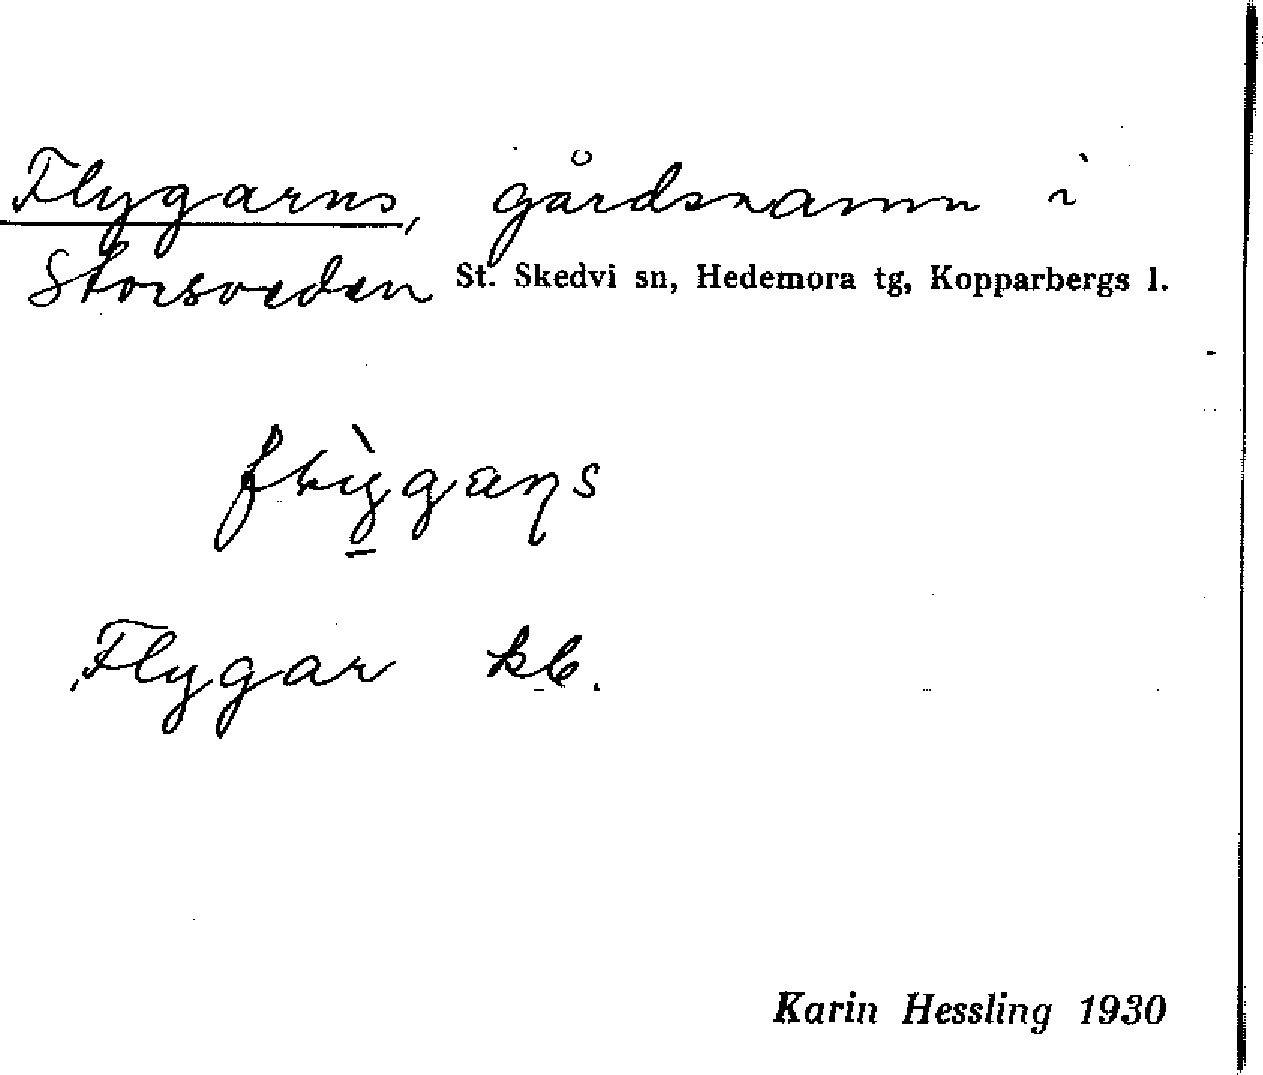 Flygarns, gårdsnamn i
Storsveden St. Skedvi sn, Hedemora tg, Kopparbergs l.
Flygar kb.
Karin Hessling 1930